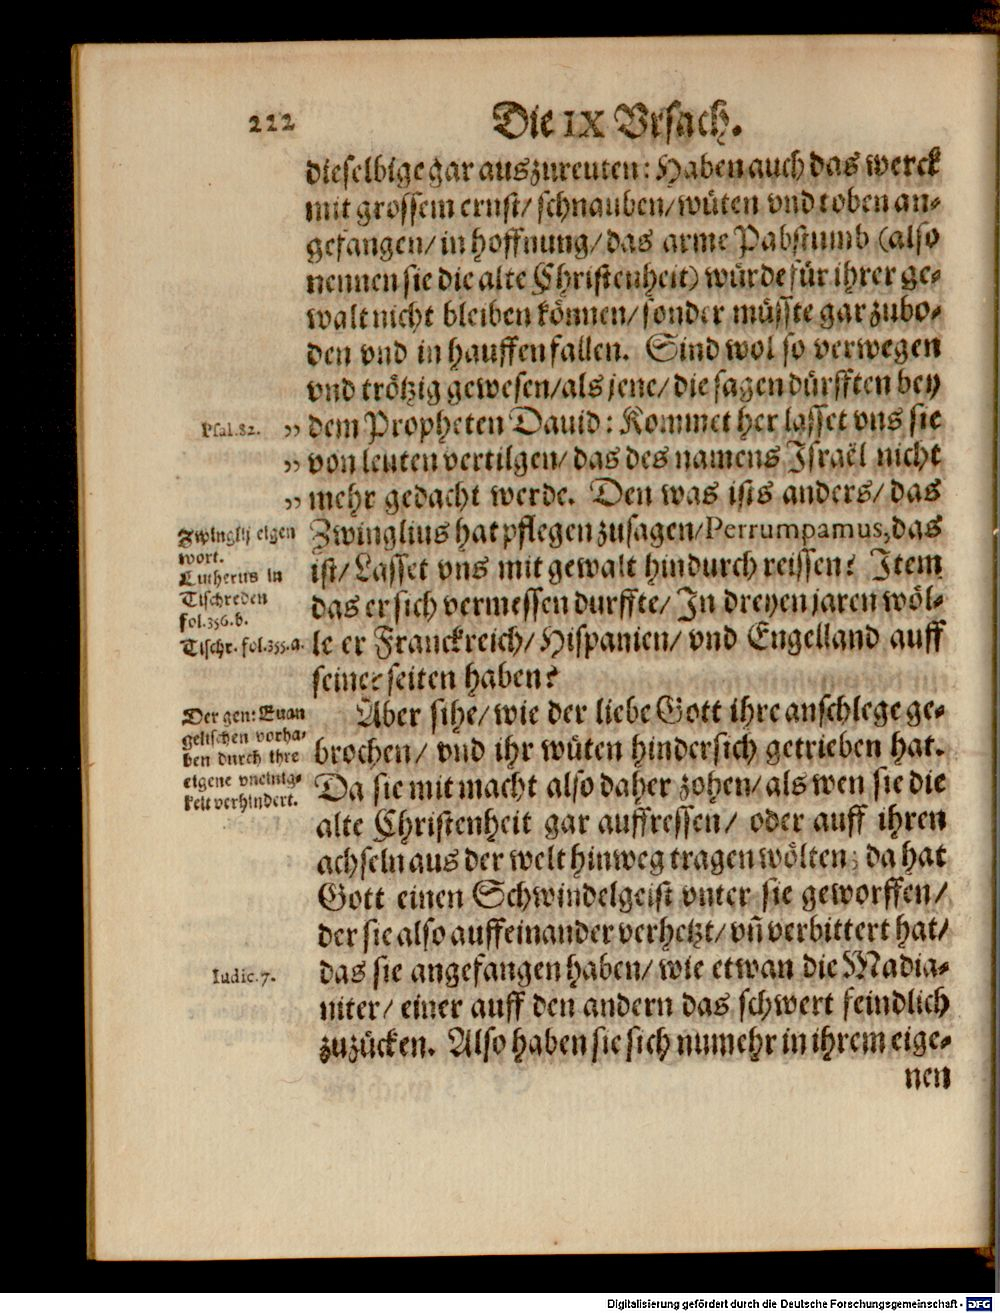 222 Die IX Vrsach.
dieselbige gar auszureuten: Haben auch das werck
mit grossem ernst/ schnauben/ wüten vnd toben an-
gefangen/ in hoffnung/ das arme Pabstumb (also
nennen sie die alte Christenheit) würde für ihrer ge-
walt nicht bleiben können/ sonder müsste gar zubo-
den vnd in hauffen fallen. Sind wol so verwegen
vnd trötzig gewesen/ als jene/ die sagen dürfften bey
Psal.82. „ dem Propheten Dauid: Kommet her lasset vns sie
„ von leuten vertilgen/ das des namens Israël nicht
„ mehr gedacht werde. Den was ists anders/ das
Zwinglij eigen
wort.
Zwinglius hat pflegen zusagen/ Perrumpamus, das
Lutherus in
Tischreden
fol.356.b.
ist/ Lasset vns mit gewalt hindurch reissen? Item
das er sich vermessen durffte/ In dreyen jaren wöl-
Tischr. fol.355.a.
le er Franckreich/ Hispanien/ vnd Engelland auff
seiner seiten haben?
Der gen: Euan
gelischen vorha-
ben durch ihre
eigene vneinig-
keit verhindert.
Aber sihe/ wie der liebe Gott ihre anschlege ge-
brochen/ vnd ihr wüten hindersich getrieben hat.
Da sie mit macht also daher zohen/ als wen sie die
alte Christenheit gar auffressen/ oder auff ihren
achseln aus der welt hinweg tragen wölten; da hat
Gott einen Schwindelgeist vnter sie geworffen/
der sie also auffeinander verhetzt/ vn̄ verbittert hat/
Iudic.7.
das sie angefangen haben/ wie etwan die Madia-
niter/ einer auff den andern das schwert feindlich
zuzücken. Also haben sie sich numehr in ihrem eige-
nen
Digitalisierung gefördert durch die Deutsche Forschungsgemeinschaft - DFG